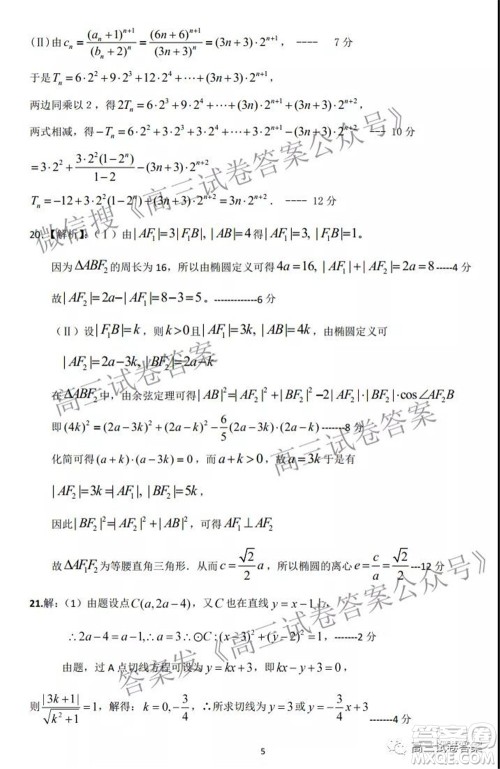 (Ⅱ)由 c_n = (a_n+1)^{n+1}/(b_n+2)^n = (6n+6)^{n+1}/(3n+3)^n = (3n+3)·2^{n+1}， ---- 7 分
于是 T_n = 6·2²+9·2³+12·2⁴+⋯+(3n+3)·2^{n+1}，
两边同乘以 2，得 2T_n = 6·2³+9·2⁴+⋯+(3n)·2^{n+1}+(3n+3)·2^{n+2}，
两式相减，得 −T_n = 6·2²+3·2³+3·2⁴+⋯ ---- 10 分
= 3·2² + 3·2²(1−2ⁿ)/(1−2) − (3n+3)·2^{n+2}
T_n = −12+3·2²(1−2ⁿ)+(3n+3)·2^{n+2} = 3n·2^{n+2}． ---- 12 分
20.【解析】：（Ⅰ）由 |AF₁|=3|F₁B|, |AB|=4 得|AF₁|=3, |F₁B|=1。
因为 ΔABF₂ 的周长为 16，所以由椭圆定义可得 4a=16, |AF₁|+|AF₂|=2a=8 -----4 分
故|AF₂|=2a−|AF₁|=8−3=5。-------------6 分
（Ⅱ）设|F₁B|=k，则 k>0且|AF₁|=3k, |AB|=4k，由椭圆定义可
|AF₂|=2a−3k, |BF₂|=2a−k
在 ΔABF₂ 中，由余弦定理可得|AB|²=|AF₂|²+|BF₂|²−2|AF₂|·|BF₂|·cos∠AF₂B
即 (4k)²=(2a−3k)²+(2a−k)²−6/5(2a−3k)·(2a−k) -------8 分
化简可得 (a+k)·(a−3k)=0，而 a+k>0，故 a=3k 于是有
|AF₂|=3k=|AF₁|, |BF₂|=5k，
因此|BF₂|²=|AF₂|²+|AB|²，可得 AF₁⊥AF₂
故 ΔAF₁F₂ 为等腰直角三角形．从而 c=√2/2 a，所以椭圆的离心 e=c/a=√2/2 ---12 分
21.解：（1）由题设点 C(a,2a−4)，又 C 也在直线 y=x−1上，
∴2a−4=a−1,∴a=3∴⊙C:(x−3)²+(y−2)²=1，-------2 分
由题，过 A 点切线方程可设为 y=kx+3，即 kx−y+3=0，
则 |3k+1|/√(k²+1)=1，解得：k=0,−3/4，∴所求切线为 y=3 或 y=−3/4 x+3 -------4 分
5
微信搜《高三试卷答案公众号》
高三试卷答案
高三试卷答案
答案发《高三试卷答案公众号》
高三试卷答案